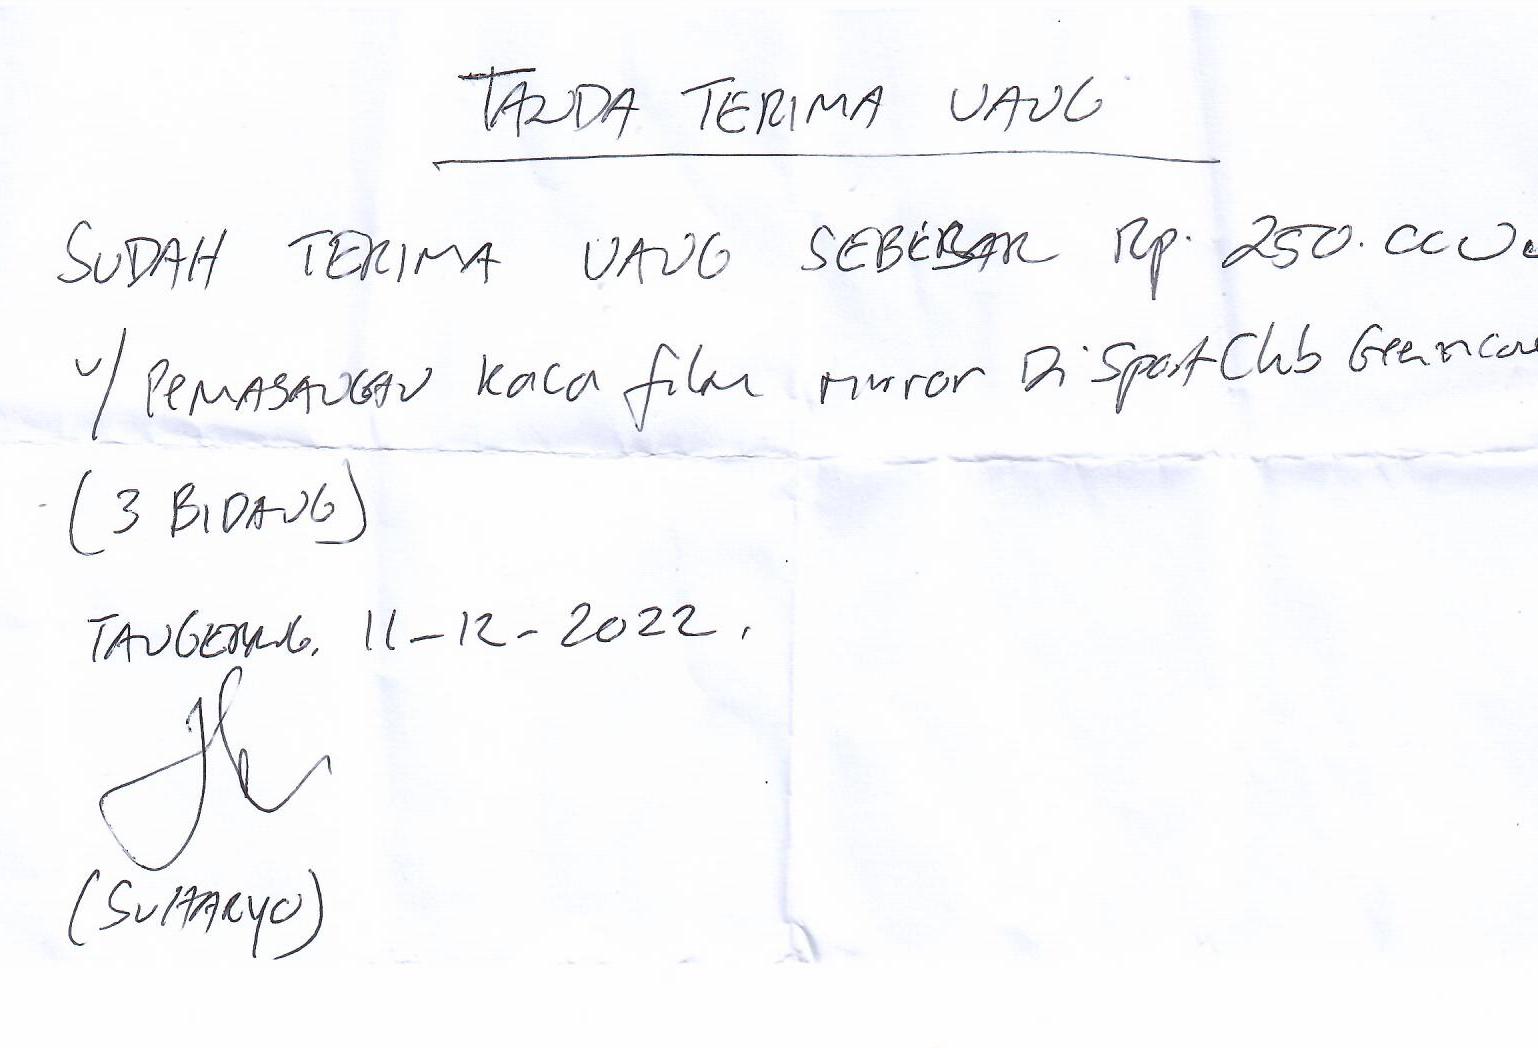 TANDA TERIMA UANG
SUDAH TERIMA UANG SEBESAR Rp. 250.000
u/ PEMASANGAN kaca film mirror Di Sport Club
(3 BIDANG)
TANGERANG, 11-12-2022.
(SUHARYO)